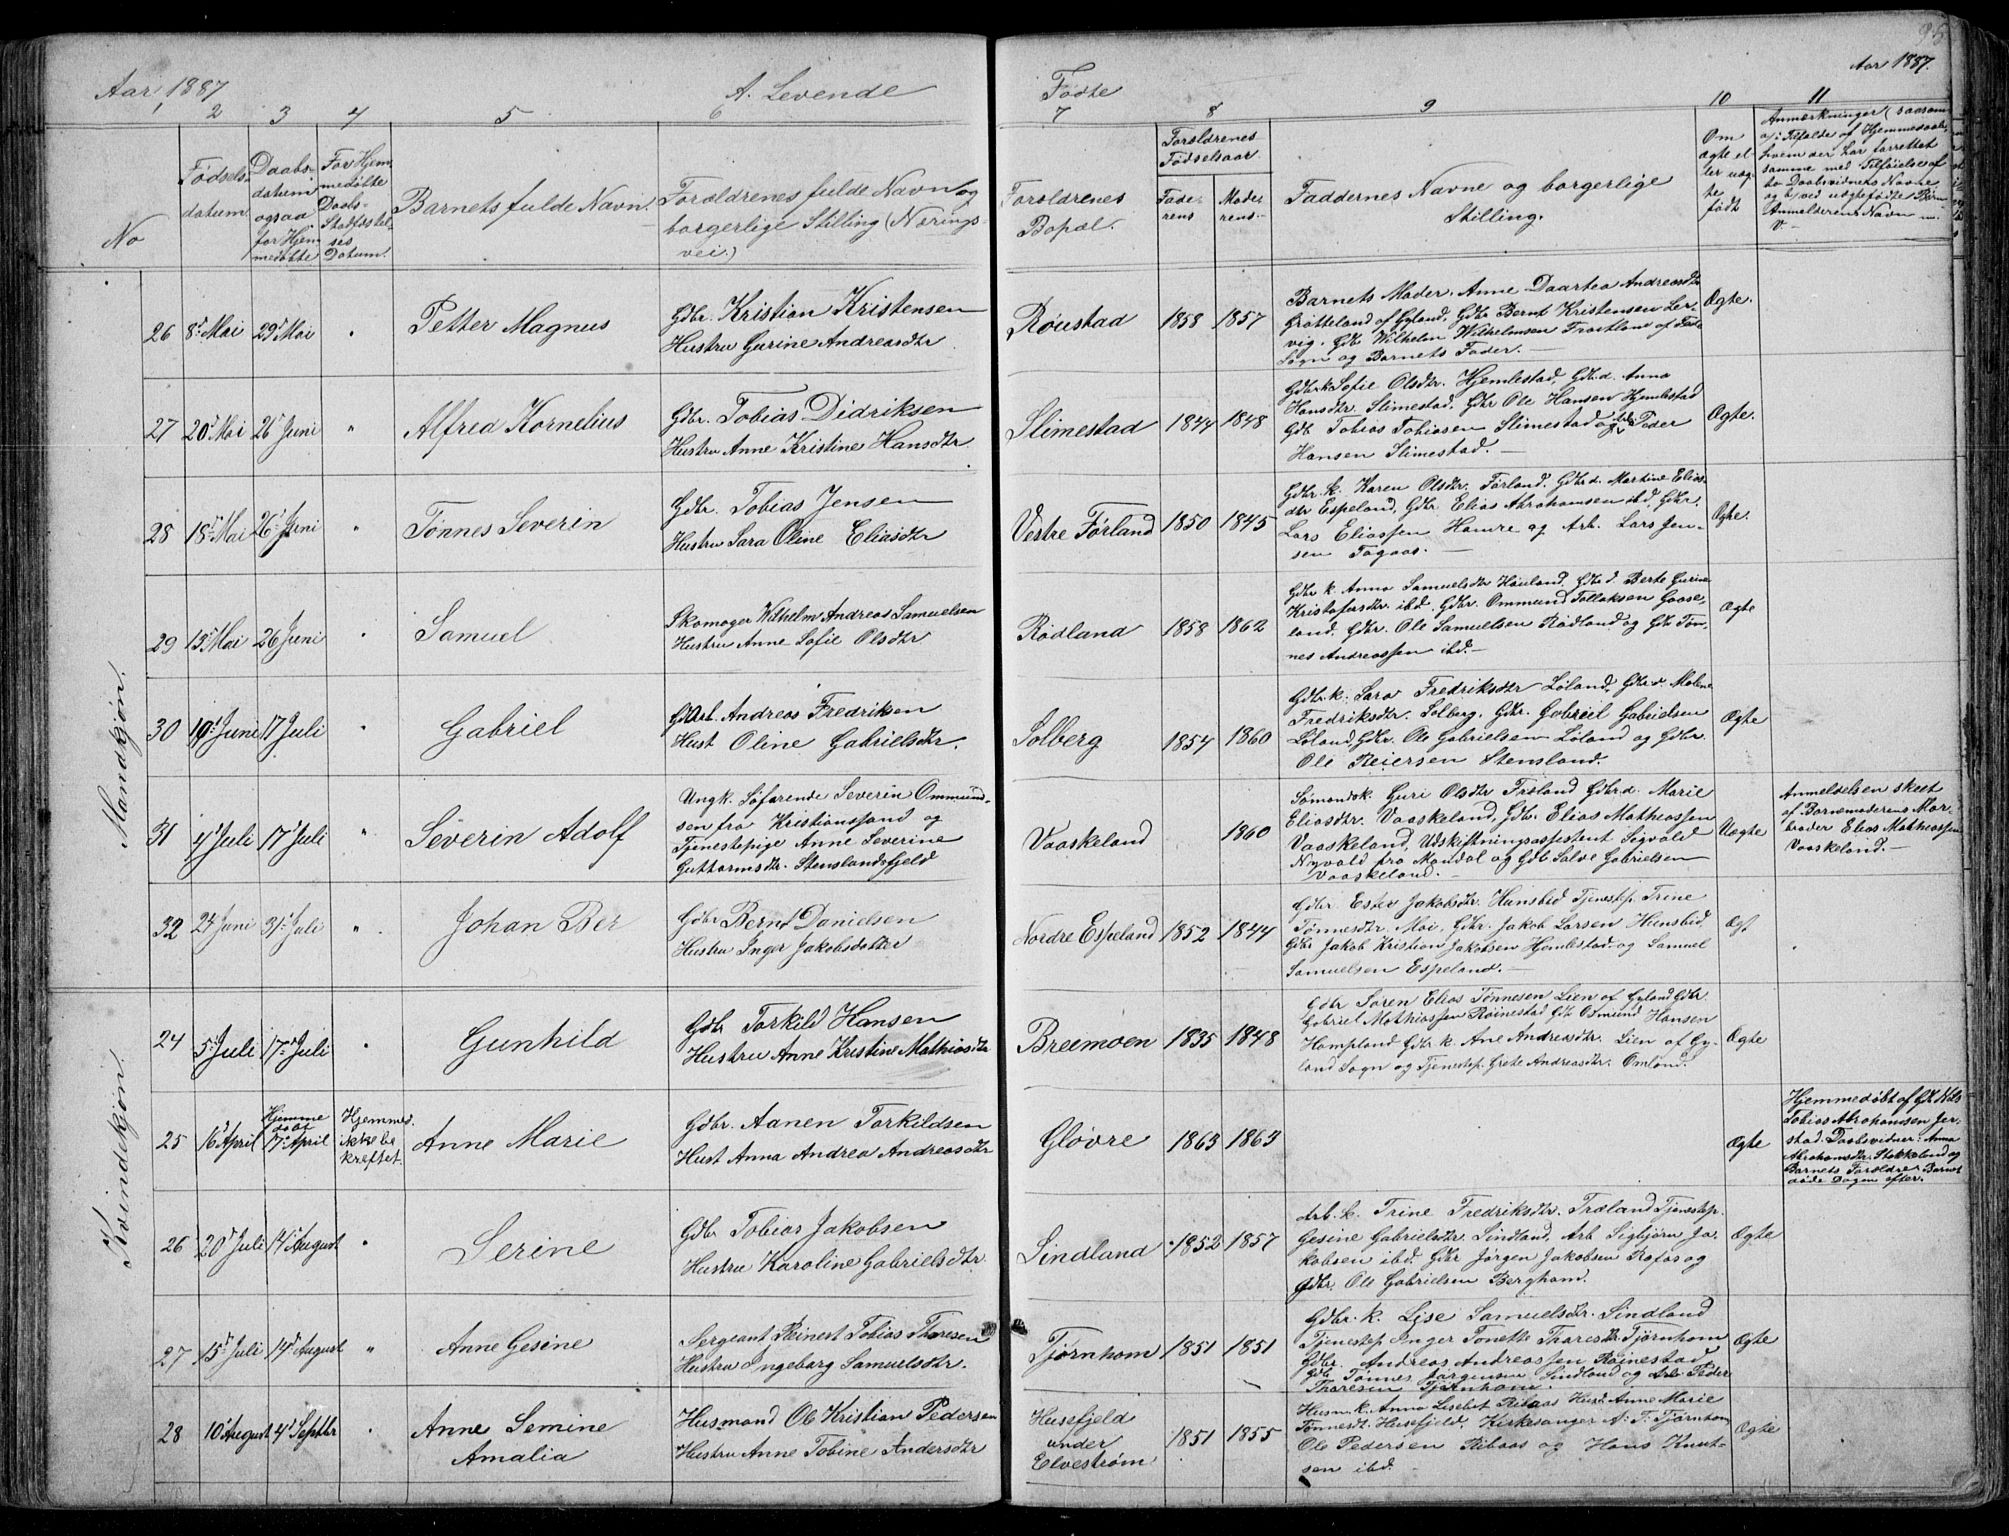 Aar 1887
A. Levende
Fødte
Aar 1887.
1 2 3 4 5 6 7 8 9 10 11
No
Fødsels-
datum.
Daabs-
datum
ogsaa
for Hjem
medøbte
For Hjem
medøbte
Daabs-
Stadfæstel-
ses
Datum.
Barnets fulde Navn.
Forældrenes fulde Navn og
borgerlige Stilling (Nærings-
vei.)
Forældrenes
Bopæl.
Forældrenes
Fødselsaar
Fade-
rens
Mode-
rens
Faddernes Navne og borgerlige
Stilling.
Om
ægte el
ler uæg-
te
født
Anmærkninger (saasom
a, i Tilfælde af Hjemmedaab,
hvem der har forrettet
samme med Tilføielse af
to Daabsvidners Navne
og b, ved uægtefødte Børn
Anmelderens Navn m.
v.
Mandkjøn.
26 8de Mai 29de Mai "
Petter Magnus
Gdbr. Kristian Kristensen
Hustru Gurine Andreasdtr
Røiestad 1858 1857
Barnets Moder. Anne Daartea Andreasdtr
Grøtteland af Gyland, Gdbr Bernt Kristensen Ler-
vig. Gdb Wilhelm Wilhelmsen Trastlan af Feda
Sogn og Barnets Fader.
Ægte.
27 20de Mai 26de Juni "
Alfred Kornelius
Gdbr. Tobias Didriksen
Hustru Anne Kristine Hansdtr
Slimestad 1844 1848
Gdbrk Sofie Olsdtr. Hjemlestad, Gdbr.d. Anna
Hansdtr. Slimestad, Gdbr Ole Hansen Hjemlestad
Gdb Tobias Tobiasen Slimestad og Gdbr Peder
Hansen Slimestad.
Ægte.
28 18de Mai 26de Juni "
Tønnes Severin
Gdbr. Tobias Jensen
Hustru Sara Oline Eliasdtr
Vestre Førland 1850 1845
Gdbr. k. Karen Olsdtr. Førland, Gdbr.d. Martine Elias-
dtr Espeland, Gdbr. Elias Abrahamsen ibd, Gdbr.
Lars Eliassen Hamre og Arb. Lars Jen-
sen Fagaas.
Ægte.
29 15de Mai 26de Juni "
Samuel
Skomager Wilhelm Andreas Samuelsen
Hustru Anne Sofie Olsdtr
Rødland 1858 1862
Gdbr k. Anna Samuelsdtr Høiland. Gdbr.d. Berte Gurine
Kristofersdtr. ibd. Gdbr. Ommund Tollaksen Gaase-
land. Gdbr. Ole Samuelsen Rødland og Gdb Tøn-
nes Andreassen ibd.
Ægte
30 19de Juni 17 Juli "
Gabriel
GdArb. Andreas Fredriksen
Hust Oline Gabrielsdtr.
Solberg 1854 1860
Gdbr. k. Sara Fredriksdtr Løland, Gdbr.d. Malene
Fredriksdtr. Solberg. Gdbr. Gabriel Gabrielsen
Løland, Gdbr. Ole Gabrielsen Løland og Gdbr.
Ole Reiersen Stensland.
Ægte
31 4de Juli 17de Juli "
Severin Adolf
Ungk. Søfarende Severin Ommund-
sen fra Kristianssand og
Tjenestepige Anne Severine
Guttormsdtr. Stenslandsfjeld
Vaaskeland 1860
Sømandsk. Guri Olsdtr Frøland Gdbr.d. Marie
Eliasdtr. Vaaskeland, Gdb. Elias Mathiassen
Vaaskeland, Udskiftningsassistent Sigvald
Nyvold fra Mandal og Gdb Salve Gabrielsen
Vaaskeland.
Uægte
Anmeldelsen skeet
af Barnemoderens Mor-
broder Elias Mathiassen
Vaaskeland.
32 24 Juni 31te Juli "
Johan Ber
Gdbr Bernt Danielsen
Hustru Inger Jakobsdatter
Nordre Espeland 1852 1844
Gdbr. Ester Jakobsdtr. Hunsbed Tjenestep. Trine
Tønnesdtr. Moi, Gdbr. Jakob Larsen Hunsbed
Gdbr Jakob Kristian Jakobsen Hjemlestad og Samuel
Samuelsen Espeland.
Ægt
Kvindekjøn.
24 5te Juli 17de Juli "
Gunhild
Gdbr Torkild Hansen
Hustru Anne Kristine Mathiasdtr
Breemoen 1835 1848
Gdbr Søren Elias Tønnesen Lien af Gyland Gdbr.
Gabriel Mathiassen Røinestad Gdb Osmund Hansen
Hompland Gdbr k. Ane Andreasdtr. Lien af Gy-
land Sogn og Tjenestep. Grete Andreasdtr. Omland.
Ægte
25 16de April
Hjemme
døbt
17de April
Hjemmed.
ikke be
kreftet
Anne Marie
Gdbr. Aanen Torkildsen
Hust Anna Andrea Andreasdtr
Gløvre 1863 1863
Ægte
Hjemmedøbt af
Tobias Abrahamsen Jer-
stad. Daabsvidner: Anna
Abrahamsdtr. Stokkeland og
Barnets Forældre Barnet
døde Dagen efter.
26 20de Juli 14de August "
Serine
Gdbr Tobias Jakobsen
Hustru Karoline Gabrielsdtr.
Sindland 1852 1857
Arb. k. Trine Fredriksdtr. Træland Tjenestep.
Gesine Gabrielsdtr. Sindland, Arb Sigbjørn Ja-
kobsen ibd. Gdbr Jørgen Jakobsen Rafos og
Gdbr. Ole Gabrielsen Bergham.
Ægte
27 15de Juli 14de August "
Anne Gesine
Sergeant Reinert Tobias Tharesen
Hustru Ingeborg Samuelsdtr.
Tjørnhom 1851 1851
Gdbr. k. Lise Samuelsdtr. Sindland
Tjenestep Inger Tonette Tharesdtr Tjørnhom
Gdbr. Andreas Andreassen Røinestad
Gdb Tønnes Jørgensen Sindland og Arb Peder
Tharesen Tjørnhom.
Ægte
28 10de August 4de Septbr "
Anne Semine
Amalia
Husmand Ole Kristian Pedersen
Hustru Anne Tobine Andersdtr
Husefjeld
under
Elvestrøm
1851 1855
Husm. k. Anna Lisebet Ribaas Husd. Anne Marie
Tønnesdt. Husefjeld, Kirkesanger A. T. Tjørnhom
Ole Pedersen Ribaas og Hans Knut-
sen ibd.
Ægte